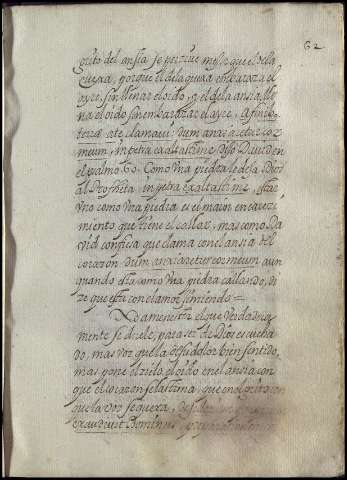 62
grito del ansia se percive mejor que el de la
quexa, porque el de la quexa embaraza el
ayre, sin llenar el oido, y el de la ansia, lle
na el oido sin embarazar el ayre. A finib.
terræ ad te clamavi dum anxiaretur cor
meum, in petra exaltasti me, dijo David en
el psalmo 60. Como una piedra le dejo Dios
al Propheta in petra exaltasti me, estar
uno como una piedra es el maior encareci
miento que tiene el callar, mas como Da
vid confiesa que clama con el ansia del
corazon dum anxiaretur cor meum aun
quando esta como una piedra callando, di
ze que esta con el amor gimiendo =
No a menester el que verdadera
mente se duele, para ser de Dios escucha
do, mas voz que la de su dolor bien sentido,
mas pone el zielo, el oido en el ansia con
que el corazon se lastima, que en el grito con
que la voz se quexa,
exaudivit Dominus